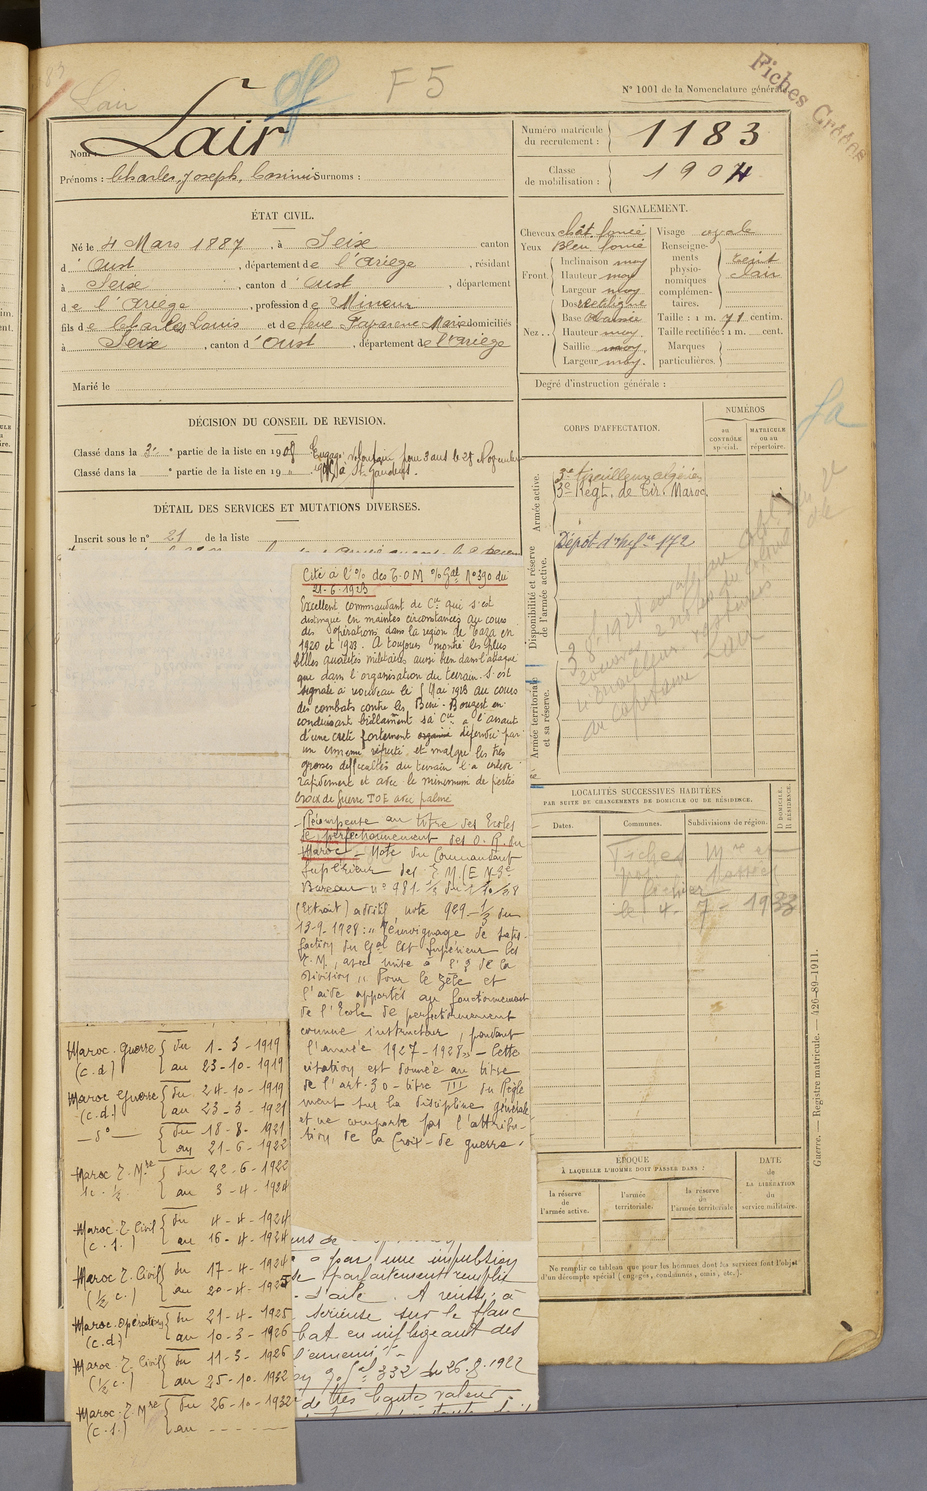 Lair
F 5
N° 1001 de la Nomenclature générale
Fiches
Nom : Lair
Prénoms : Charles, Joseph, Casimir Surnoms :
Numéro matricule du recrutement : 1183
Classe de mobilisation : 1904
ÉTAT CIVIL.
Né le 4 Mars 1887, à Seix canton
d'Oust, département de l'Ariège, résidant
à Seix, canton d'Oust, département
de l'Ariège, profession de Mineur
fils de Charles Louis et de feue Marie domiciliés
à Seix, canton d'Oust, département de l'Ariège
Marié le
SIGNALEMENT.
Cheveux chât. foncé
Yeux Bleu foncé
Front. Inclinaison moy
Hauteur moy
Largeur moy
Nez. Dos rectiligne
Base
Hauteur moy.
Saillie moy
Largeur moy.
Visage ovale
Renseignements physionomiques complémentaires. teint clair
Taille : 1 m. 71 centim.
Taille rectifiée : 1 m. cent.
Marques particulières.
Degré d'instruction générale :
DÉCISION DU CONSEIL DE REVISION.
Classé dans la 3e partie de la liste en 1908 Engagé volontaire pour 3 ans le 28 Novembre
Classé dans la partie de la liste en 19 à St Gaudens
DÉTAIL DES SERVICES ET MUTATIONS DIVERSES.
Inscrit sous le n° 21 de la liste
CORPS D'AFFECTATION.
NUMÉROS
au CONTRÔLE spécial.
MATRICULE ou au répertoire.
Armée active.
3e tirailleurs algériens
3e Régt. de Tir. Maroc.
Disponibilité et réserve de l'armée active.
Dépôt d'infie 172
Armée territoriale et sa réserve.
Lair
LOCALITÉS SUCCESSIVES HABITÉES
PAR SUITE DE CHANGEMENTS DE DOMICILE OU DE RÉSIDENCE.
Dates.
Communes.
Subdivisions de région.
D DOMICILE. R RÉSIDENCE.
Fiches Mre et
le 4 - 7 - 1933
ÉPOQUE
À LAQUELLE L'HOMME DOIT PASSER DANS :
la réserve de l'armée active.
l'armée territoriale.
la réserve de l'armée territoriale
DATE de LA LIBÉRATION du service militaire.
Ne remplir ce tableau que pour les hommes dont les services font l'objet
d'un décompte spécial (engagés, condamnés, omis, etc.).
Guerre. — Registre matricule. — 426-89-1911.
Cité à l'O/ des T.O.M O/ Gal N° 390 du
21-6-1923
Excellent commandant de Cie qui s'est
distingué en maintes circonstances au cours
des opérations dans la région de Taza en
1920 et 1923. A toujours montré les plus
belles qualités militaires aussi bien dans l'attaque
que dans l'organisation du terrain. S'est
signalé à nouveau le Mai 1923 au cours
des combats contre les Beni-Bouzert en
conduisant brillamment sa Cie à l'assaut
d'une crête fortement organisé défendue par
un ennemi réputé, et malgré les très
grosses difficultés du terrain l'a enlevé
rapidement et avec le minimum de pertes
Croix de guerre TOE avec palme
Récompense au titre des Ecoles
de perfectionnement des O. R. du
Maroc - Note du Commandant
Supérieur des T. M. (E M 3e
Bureau n° 981 1/3 du 1/10/28
(Extrait) additif note 929 - 1/3 du
13-9-1928 : "Témoignage de satis-
faction du Gal Cdt Supérieur les
T. M., avec mise à l'O/ de la
Division" Pour le zèle et
l'aide apportés au fonctionnement
de l'Ecole de perfectionnement
comme instructeur, pendant
l'année 1927-1928" - Cette
citation est donnée au titre
de l'art. 30 - titre III du Règle
ment sur la discipline générale
et ne comporte pas l'attribu-
tion de la Croix de guerre.
par une impulsion
parfaitement remplie
d'aile. A réussi à
sérieuse sur le flanc
bat en infligeant des
l'ennemi"
Gal 332 du 26.8.1922
de très haute valeur
Maroc. Guerre (c.d) du 1-3-1919
au 23-10-1919
Maroc Guerre (c.d.) du 24-10-1919
au 23-3-1921
- do - du 18-8-1921
au 21-6-1922
Maroc T. Mre sc. 1/2 du 22-6-1922
au 3-4-1924
Maroc. T. Civil (c.s.) du 4-4-1924
au 16-4-1924
Maroc T. Civil (1/2 c.) du 17-4-1924
au 20-4-1925
Maroc. Opération (c.d.) du 21-4-1925
au 10-3-1926
Maroc. T. Civil (1/2 c.) du 11-3-1926
au 25-10-1932
Maroc. T. Mre (c.s.) du 26-10-1932
au - - - -